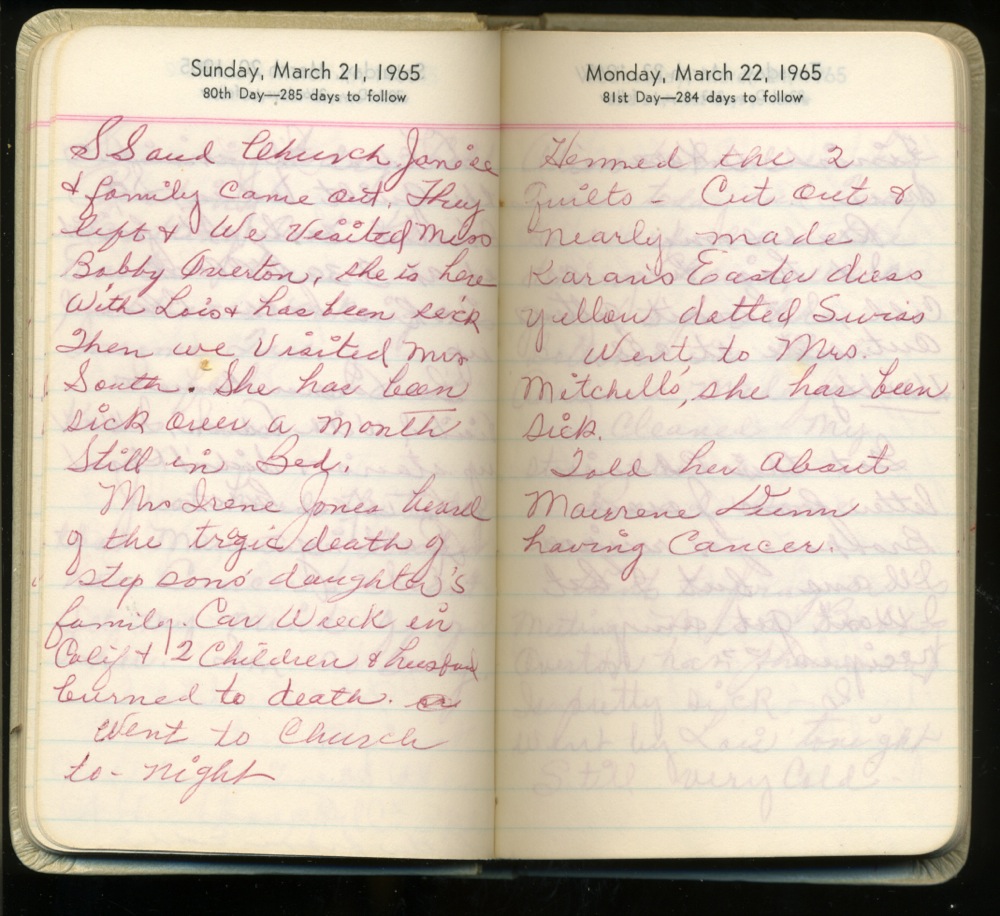 Sunday, March 21, 1965
80th Day—285 days to follow
S S and Church Janice
& family came out. They
left & We Visited Mrs
Bobby Overton, she is here
With Lois & has been sick
Then we Visited Mrs
South. She has been
sick over a month
Still in Bed.
Mrs Irene Jones heard
of the tragic death of
step sons' daughter's
family. Car Wreck in
Calif & 2 Children & husband
burned to death.
Went to Church
to-night
Monday, March 22, 1965
81st Day—284 days to follow
Hemmed the 2
quilts - Cut out &
nearly made
Karan's Easter dress
yellow dotted Swiss
Went to Mrs.
Mitchells, she has been
sick.
Told her about
Maurene Dunn
having Cancer.